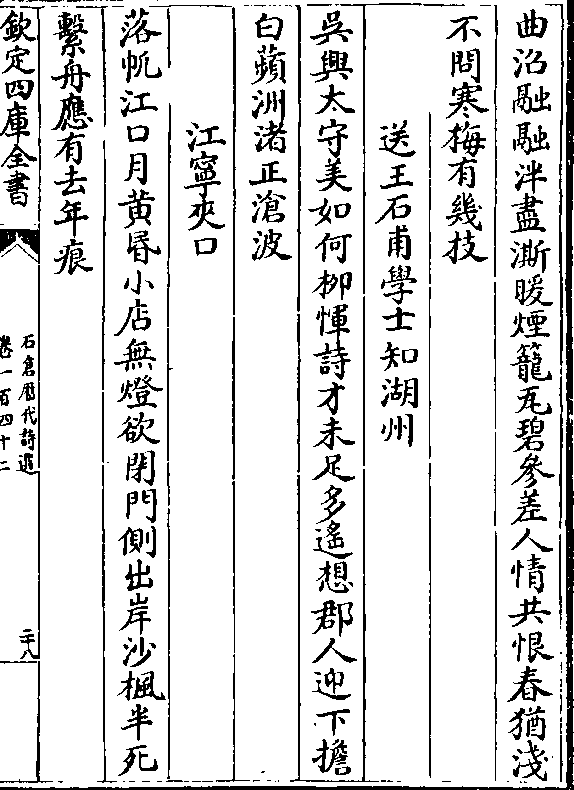 曲沼融融泮盡澌暖煙籠瓦碧參差人情共恨春猶淺
不問寒梅有幾技
送王石甫學士知湖州
吳興太守美如何柳惲詩才未足多遙想郡人迎下擔
白蘋洲渚正滄波
江寧夾口
落帆江口月黃昬小店無燈欲閉門側出岸沙楓半死
繫舟應有去年痕
欽定四庫全書
石倉歴代詩選
卷一百四十二
二十八